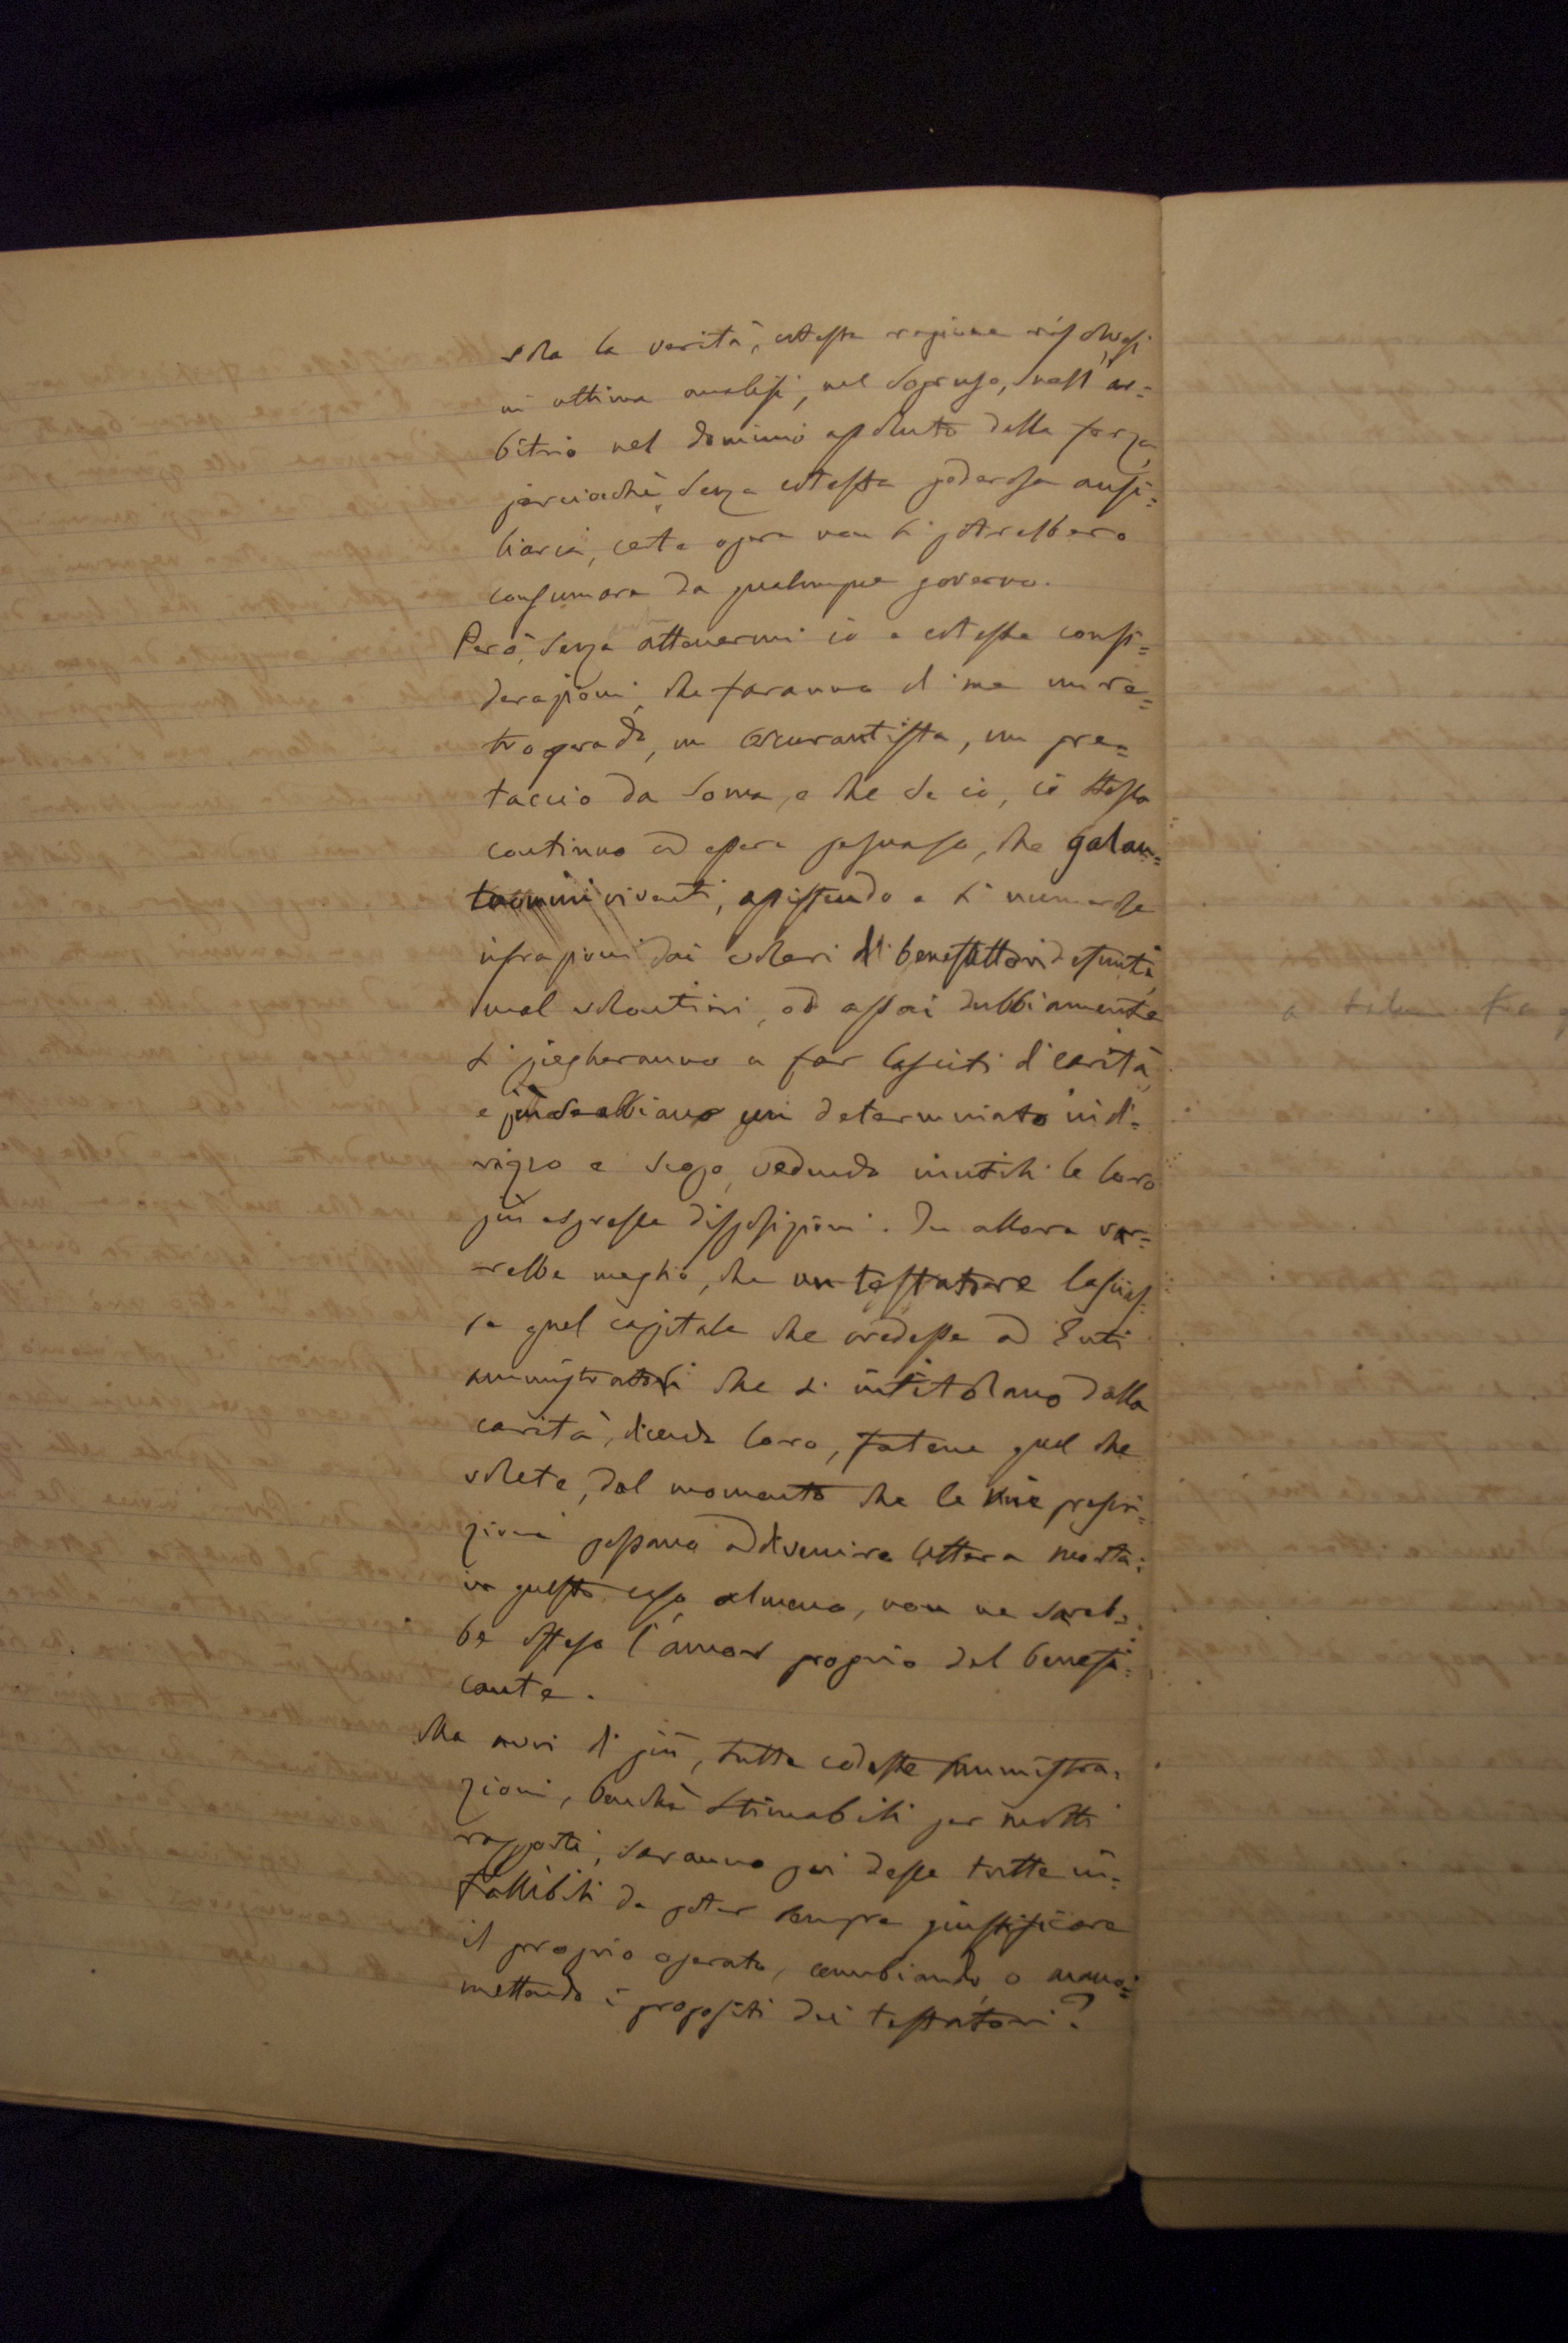 vela la verità, cotesta ragione risolvesi
in ultima analisi, nel sopruso, nell'ar=
bitrio nel dominio assoluto della forza,
perciochè, senza cotesta poderosa ausi=
liaria, certe opere non si potrebbero
consumare da qualunque governo.
Però, senza attenermi io a coteste consi=
derazioni, che faranno di me un re=
trogrado, un oscurantista, un pre=
taccio da soma, e che se io, io stesso
continuo ad essere persuaso, che galan=
tuomini viventi, assistendo a sì numerose
infrazioni dai voleri di benefattori defunti,
mal volontieri, ed assai dubbiamente
si piegheranno a far lasciti di carità,
e più se abbiano un determinato indi=
rizzo e scopo, vedendo inutili le loro
più espresse disposizioni. In allora var=
rebbe meglio, che un testatore lascias=
se quel capitale che credesse ad Enti
amministratori che s'intitolano dalla
carità, dicendo loro, fatene quel che
volete, dal momento che le mie prescri=
zioni possano addivenire lettera morta:
in questo caso almeno, non ne sareb=
be offeso l'amor proprio del benefi=
cante.
Ma avvi di più, tutte codeste Amministra=
zioni, benchè stimabili per molti
rapporti, saranno poi desse tutte in=
fallibili da poter sempre giustificare
il proprio operato, cambiando, o mano=
mettendo i propositi dei testatori?